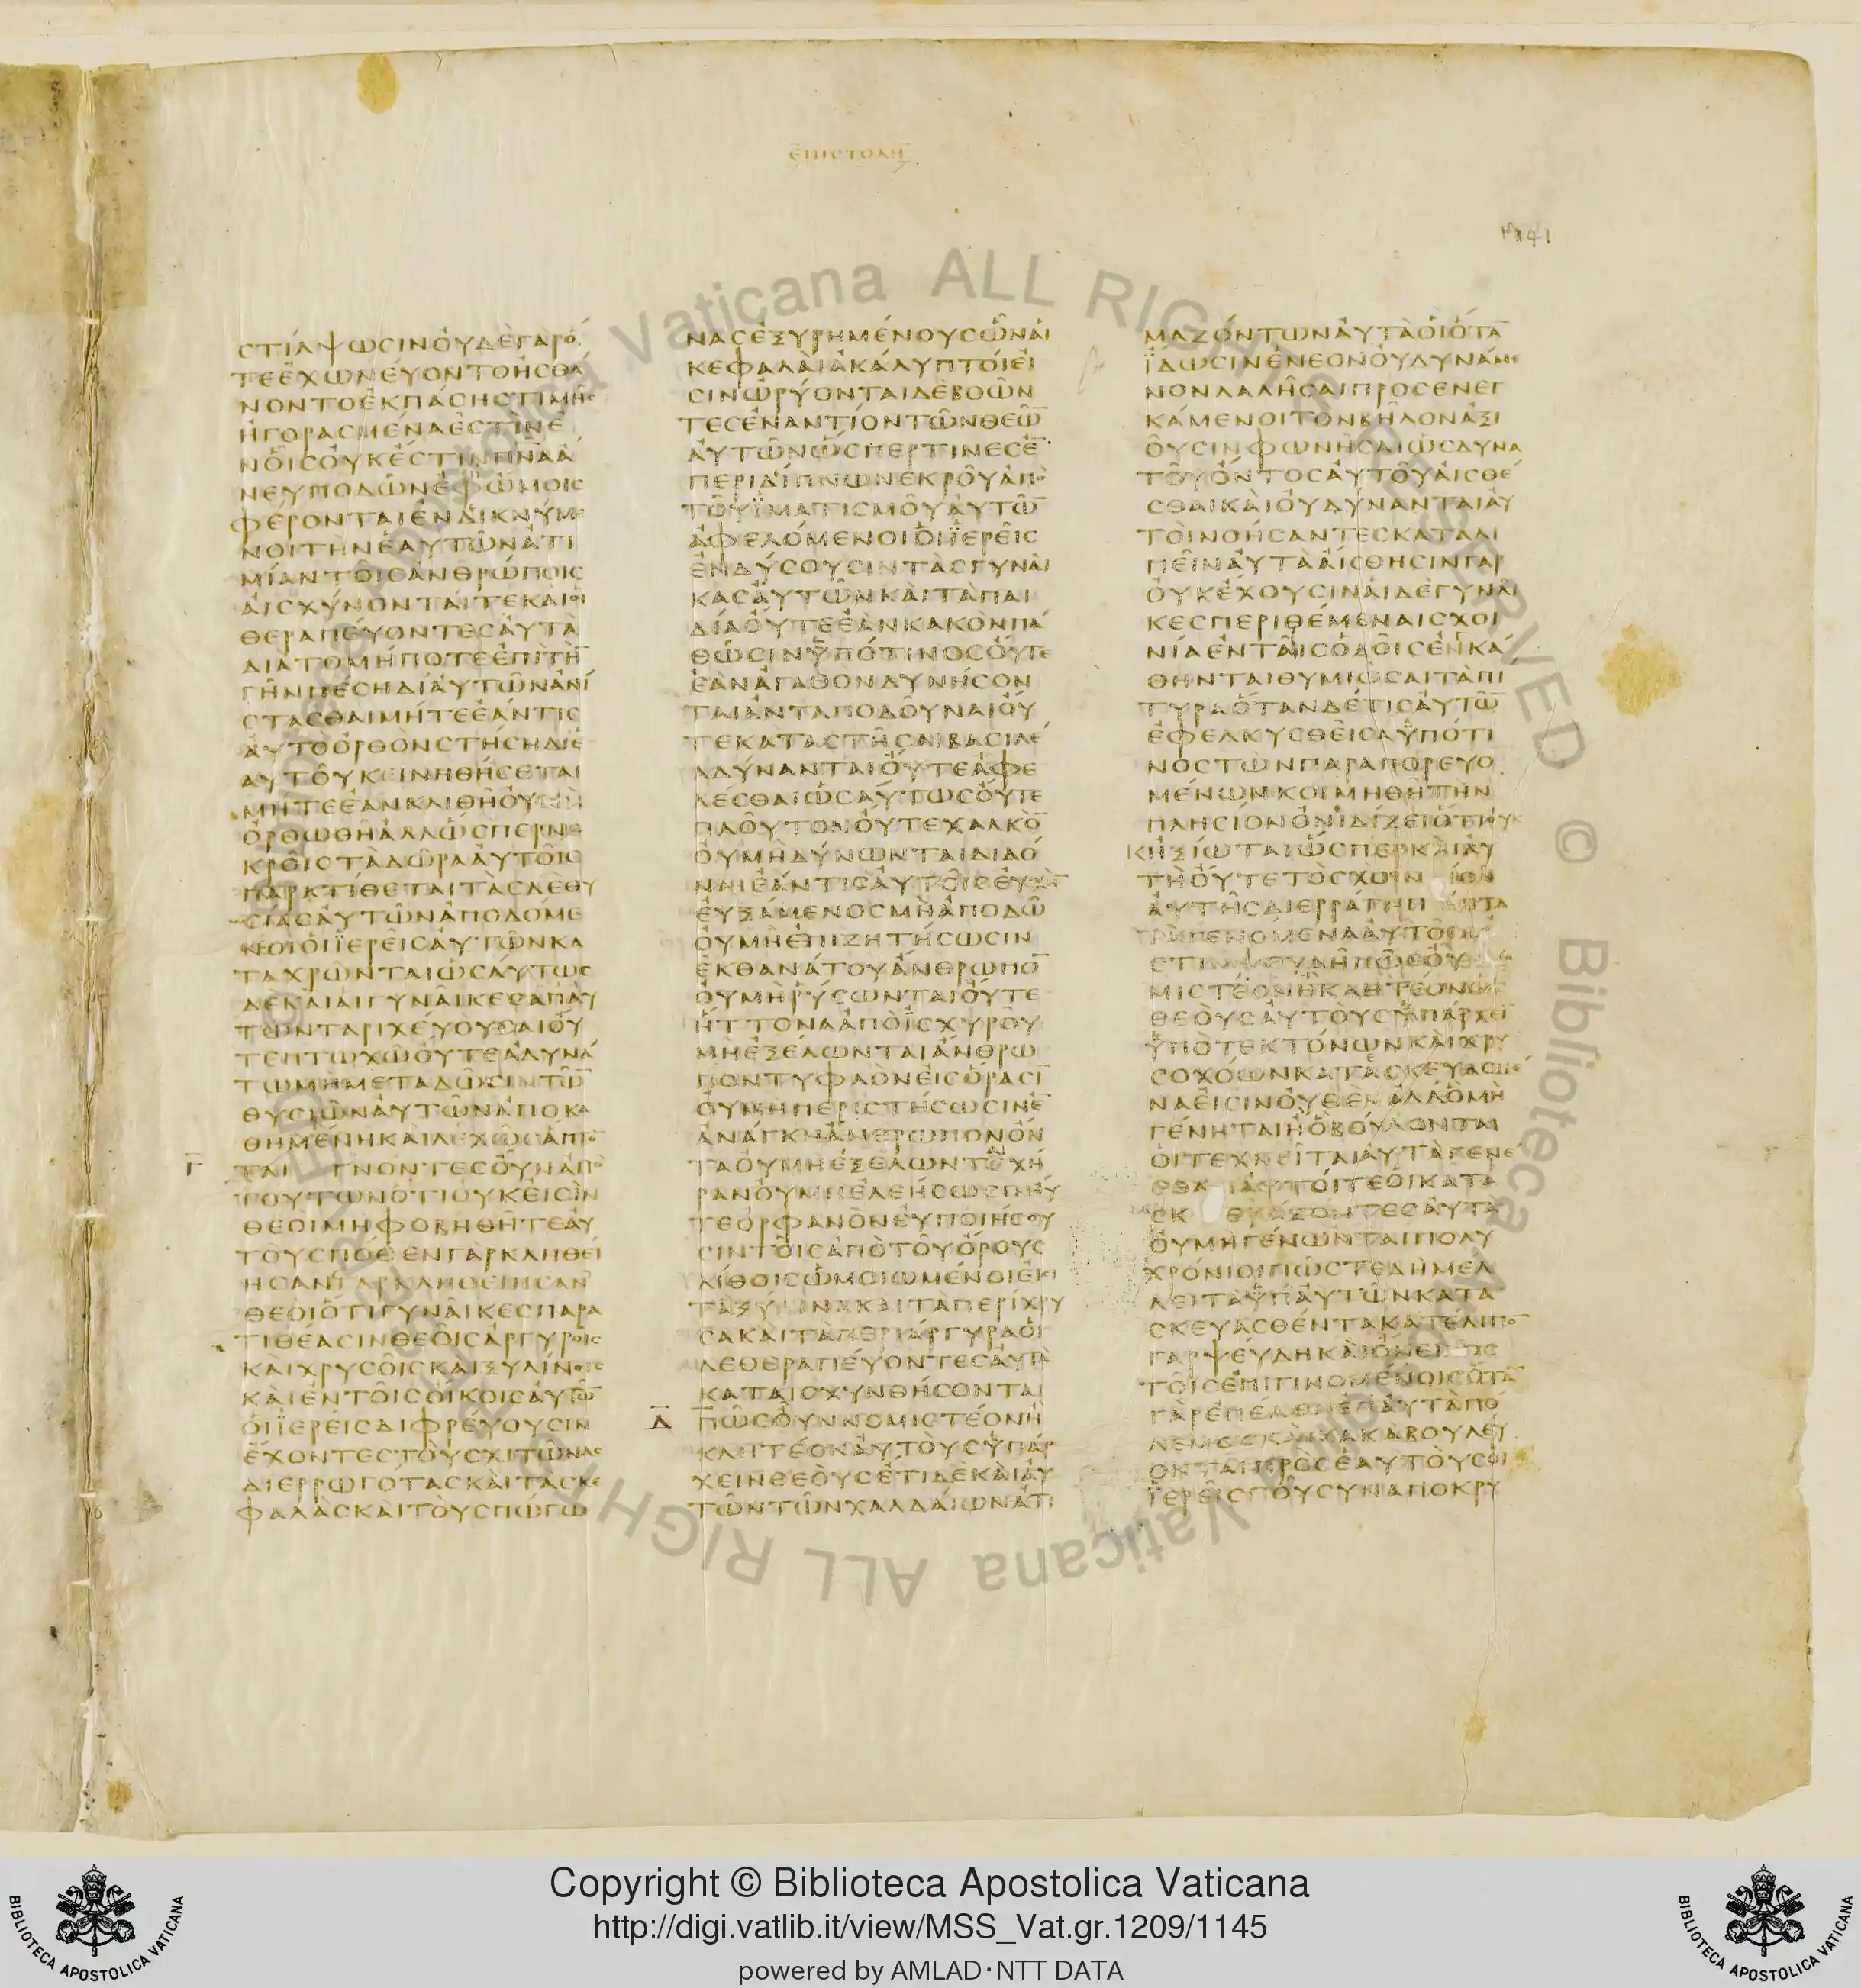 ΕΠΙϹΤΟΛΗ
1141
ϹΤΙΛΨΩϹΙΝΟΥΔΕΓΑΡΟ
ΤΕΕΧΩΝΕΥΟΝΤΟΗϹΘΑ
ΝΟΝΤΟΕΚΠΑϹΗϹΤΙΜΗϹ
ΗΓΟΡΑϹΜΕΝΑΕϹΤΙΝΕ
ΝΟΙϹΟΥΚΕϹΤΙΝΠΝΑΑ
ΝΕΥΠΟΔΩΝΕΦΩΜΟΙϹ
ΦΕΡΟΝΤΑΙΕΝΔΙΚΝΥΜΕ
ΝΟΙΤΗΝΕΑΥΤΩΝΑΤΙ
ΜΙΑΝΤΟΙϹΑΝΘΡΩΠΟΙϹ
ΑΙϹΧΥΝΟΝΤΑΙΤΕΚΑΙΟΙ
ΘΕΡΑΠΕΥΟΝΤΕϹΑΥΤΑ
ΔΙΑΤΟΜΗΠΟΤΕΕΠΙΤΗ
ΓΗΝΠΕϹΗΔΙΑΥΤΩΝΑΝΙ
ϹΤΑϹΘΑΙΜΗΤΕΕΑΝΤΙϹ
ΑΥΤΟΟΡΘΟΝϹΤΗϹΗΔΙΕ
ΑΥΤΟΥΚΕΙΝΗΘΗϹΕΤΑΙ
ΜΗΤΕΕΑΝΚΛΙΘΗΟΥΜΗ
ΟΡΘΩΘΗΑΛΛΩϹΠΕΡΝΕ
ΚΡΟΙϹΤΑΔΩΡΑΑΥΤΟΙϹ
ΠΑΡΑΤΙΘΕΤΑΙΤΑϹΔΕΘΥ
ϹΙΑϹΑΥΤΩΝΑΠΟΔΟΜΕ
ΝΟΙΟΙΪΕΡΕΙϹΑΥΤΩΝΚΑ
ΤΑΧΡΩΝΤΑΙΩϹΑΥΤΩϹ
ΔΕΚΑΙΑΙΓΥΝΑΙΚΕϹΑΠΑΥ
ΤΩΝΤΑΡΙΧΕΥΟΥϹΑΙΟΥ
ΤΕΠΤΩΧΩΟΥΤΕΑΔΥΝΑ
ΤΩΜΗΜΕΤΑΔΩϹΙΝΤΩ
ΘΥϹΙΩΝΑΥΤΩΝΑΠΟΚΑ
ΘΗΜΕΝΗΚΑΙΛΕΧΩϹΑΠΤΟ
Γ ΤΑΙ ΓΝΟΝΤΕϹΟΥΝΑΠΟ
ΤΟΥΤΩΝΟΤΙΟΥΚΕΙϹΙΝ
ΘΕΟΙΜΗΦΟΒΗΘΗΤΕΑΥ
ΤΟΥϹΠΟΘΕΝΓΑΡΚΛΗΘΕΙ
ΗϹΑΝΓΑΡΚΛΗΘΕΙΗϹΑΝ
ΘΕΟΙΟΤΙΓΥΝΑΙΚΕϹΠΑΡΑ
ΤΙΘΕΑϹΙΝΘΕΟΙϹΑΡΓΥΡΟΙϹ
ΚΑΙΧΡΥϹΟΙϹΚΑΙΞΥΛΙΝΟΙϹ
ΚΑΙΕΝΤΟΙϹΟΙΚΟΙϹΑΥΤΩ
ΟΙΪΕΡΕΙϹΔΙΦΡΕΥΟΥϹΙΝ
ΕΧΟΝΤΕϹΤΟΥϹΧΙΤΩΝΑϹ
ΔΙΕΡΡΩΓΟΤΑϹΚΑΙΤΑϹΚΕ
ΦΑΛΑϹΚΑΙΤΟΥϹΠΩΓΩ
ΝΑϹΕΞΥΡΗΜΕΝΟΥϹΩΝΑΙ
ΚΕΦΑΛΑΙΑΚΑΛΥΠΤΟΙΕΙ
ϹΙΝΩΡΥΟΝΤΑΙΔΕΒΟΩΝ
ΤΕϹΕΝΑΝΤΙΟΝΤΩΝΘΕΩ
ΑΥΤΩΝΩϹΠΕΡΤΙΝΕϹΕ
ΠΕΡΙΔΙΠΝΩΝΕΚΡΟΥΑΠΟ
ΤΟΥΪΜΑΤΙϹΜΟΥΑΥΤΩ
ΑΦΕΛΟΜΕΝΟΙΟΙΪΕΡΕΙϹ
ΕΝΔΥϹΟΥϹΙΝΤΑϹΓΥΝΑΙ
ΚΑϹΑΥΤΩΝΚΑΙΤΑΠΑΙ
ΔΙΑΟΥΤΕΕΑΝΚΑΚΟΝΠΑ
ΘΩϹΙΝΫΠΟΤΙΝΟϹΟΥΤΕ
ΕΑΝΑΓΑΘΟΝΔΥΝΗϹΟΝ
ΤΑΙΑΝΤΑΠΟΔΟΥΝΑΙΟΥ
ΤΕΚΑΤΑϹΤΗϹΑΙΒΑϹΙΛΕ
ΑΔΥΝΑΝΤΑΙΟΥΤΕΑΦΕ
ΛΕϹΘΑΙΩϹΑΥΤΩϹΟΥΤΕ
ΠΛΟΥΤΟΝΟΥΤΕΧΑΛΚΟ
ΟΥΜΗΔΥΝΩΝΤΑΙΔΙΔΟ
ΝΑΙΕΑΝΤΙϹΑΥΤΟΙϹΕΥΧΗ
ΕΥΞΑΜΕΝΟϹΜΗΑΠΟΔΩ
ΟΥΜΗΕΠΙΖΗΤΗϹΩϹΙΝ
ΕΚΘΑΝΑΤΟΥΑΝΘΡΩΠΟ
ΟΥΜΗΡΥϹΩΝΤΑΙΟΥΤΕ
ΗΤΤΟΝΑΑΠΟΪϹΧΥΡΟΥ
ΜΗΕΞΕΛΩΝΤΑΙΑΝΘΡΩ
ΠΟΝΤΥΦΛΟΝΕΙϹΟΡΑϹΙ
ΟΥΜΗΠΕΡΙϹΤΗϹΩϹΙΝΕ
ΑΝΑΓΚΗΑΝΘΡΩΠΟΝΟΝ
ΤΑΟΥΜΗΕΞΕΛΩΝΤΑΙΧΗ
ΡΑΝΟΥΜΗΕΛΕΗϹΩϹΙΝΟΥ
ΤΕΟΡΦΑΝΟΝΕΥΠΟΙΗϹΟΥ
ϹΙΝΤΟΙϹΑΠΟΤΟΥΟΡΟΥϹ
ΛΙΘΟΙϹΩΜΟΙΩΜΕΝΟΙΕΙϹΙ
ΤΑΞΥΛΙΝΑΚΑΙΤΑΠΕΡΙΧΡΥ
ϹΑΚΑΙΤΑΠΕΡΙΑΡΓΥΡΑΟΙ
ΔΕΘΕΡΑΠΕΥΟΝΤΕϹΑΥΤΑ
ΚΑΤΑΙϹΧΥΝΘΗϹΟΝΤΑΙ
Δ ΠΩϹΟΥΝΝΟΜΙϹΤΕΟΝΗ
ΚΛΗΤΕΟΝΑΥΤΟΥϹΫΠΑΡ
ΧΕΙΝΘΕΟΥϹΕΤΙΔΕΚΑΙΑΥ
ΤΩΝΤΩΝΧΑΛΔΑΙΩΝΑΤΙ
ΜΑΖΟΝΤΩΝΑΥΤΑΟΙΟΤΑ
ΪΔΩϹΙΝΕΝΕΟΝΟΥΔΥΝΑΜΕ
ΝΟΝΛΑΛΗϹΑΙΠΡΟϹΕΝΕΓ
ΚΑΜΕΝΟΙΤΟΝΒΗΛΟΝΑΞΙ
ΟΥϹΙΝΦΩΝΗϹΑΙΩϹΔΥΝΑ
ΤΟΥΟΝΤΟϹΑΥΤΟΥΑΙϹΘΕ
ϹΘΑΙΚΑΙΟΥΔΥΝΑΝΤΑΙΑΥ
ΤΟΙΝΟΗϹΑΝΤΕϹΚΑΤΑΛΙ
ΠΕΙΝΑΥΤΑΑΙϹΘΗϹΙΝΓΑΡ
ΟΥΚΕΧΟΥϹΙΝΑΙΔΕΓΥΝΑΙ
ΚΕϹΠΕΡΙΘΕΜΕΝΑΙϹΧΟΙ
ΝΙΑΕΝΤΑΙϹΟΔΟΙϹΕΝΚΑ
ΘΗΝΤΑΙΘΥΜΙΩϹΑΙΤΑΠΙ
ΤΥΡΑΟΤΑΝΔΕΤΙϹΑΥΤΩ
ΕΦΕΛΚΥϹΘΕΙϹΑΫΠΟΤΙ
ΝΟϹΤΩΝΠΑΡΑΠΟΡΕΥΟ
ΜΕΝΩΝΚΟΙΜΗΘΗΤΗΝ
ΠΛΗϹΙΟΝΟΝΙΔΙΖΕΙΟΤΙΟΥΚ
ΚΗΞΙΩΤΑΙΩϹΠΕΡΚΑΙΑΥ
ΤΗΟΥΤΕΤΟϹΧΟΙΝΙΟΝ
ΑΥΤΗϹΔΙΕΡΡΑΓΗ
ΓΕΙΝΟΜΕΝΑΑΥΤΟΙϹ
ΜΙϹΤΕΟΝΗΚΛΗΤΕΟΝΩϹ
ΘΕΟΥϹΑΥΤΟΥϹΫΠΑΡΧΕΙ
ΫΠΟΤΕΚΤΟΝΩΝΚΑΙΧΡΥ
ϹΟΧΟΩΝΚΑΤΑϹΚΕΥΑϹΜΕ
ΝΑΕΙϹΙΝΟΥΘΕΝΑΛΛΟΜΗ
ΓΕΝΗΤΑΙΗΟΒΟΥΛΟΝΤΑΙ
ΟΙΤΕΧΝΕΙΤΑΙΑΥΤΑΓΕΝΕ
ϹΘΑΙΑΥΤΟΙΤΕΟΙΚΑΤΑ
ϹΚΕΥΑΖΟΝΤΕϹΑΥΤΑ
ΟΥΜΗΓΕΝΩΝΤΑΙΠΟΛΥ
ΧΡΟΝΙΟΙΠΩϹΤΕΔΗΜΕΛ
ΛΕΙΤΑΫΠΑΥΤΩΝΚΑΤΑ
ϹΚΕΥΑϹΘΕΝΤΑΚΑΤΕΛΙΠΟ
ΓΑΡΨΕΥΔΗΚΑΙΟΝΕΙΔΟϹ
ΤΟΙϹΕΠΙΓΙΝΟΜΕΝΟΙϹΟΤΑ
ΓΑΡΕΠΕΛΘΗΕΠΑΥΤΑΠΟ
ΛΕΜΟϹΚΑΙΚΑΚΑΒΟΥΛΕΥ
ΟΝΤΑΙΠΡΟϹΕΑΥΤΟΥϹΟΙ
ΪΕΡΕΙϹΠΟΥϹΥΝΑΠΟΚΡΥ
Vaticana ALL RIGHTS RESERVED © Biblioteca Vaticana ALL RIGH
BIBLIOTECA APOSTOLICA VATICANA
Copyright © Biblioteca Apostolica Vaticana
http://digi.vatlib.it/view/MSS_Vat.gr.1209/1145
powered by AMLAD·NTT DATA
BIBLIOTECA APOSTOLICA VATICANA